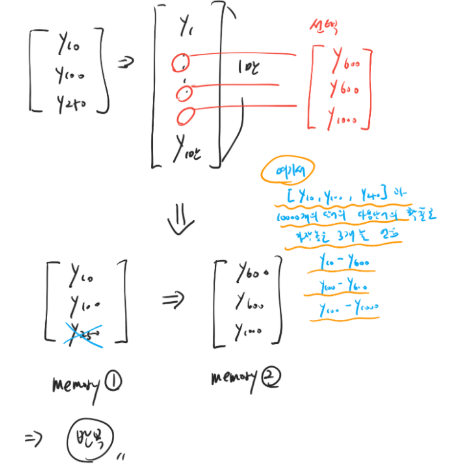 y₁₀
y₁₀₀
y₂₅₀
⇒
y₁
y₁만
1만
선택
y₆₀₀
y₆₀₀
y₁₀₀₀
여기서
[y₁₀, y₁₀₀, y₂₅₀] 과
10000개의 단어의 다음단어의 확률로
3개는
y₁₀ - y₆₀₀
y₁₀₀ - y₆₀₀
y₁₀₀ - y₁₀₀₀
⇓
y₁₀
y₁₀₀
y₂₅₀
⇒
y₆₀₀
y₆₀₀
y₁₀₀₀
memory ①
memory ②
⇒ 반복